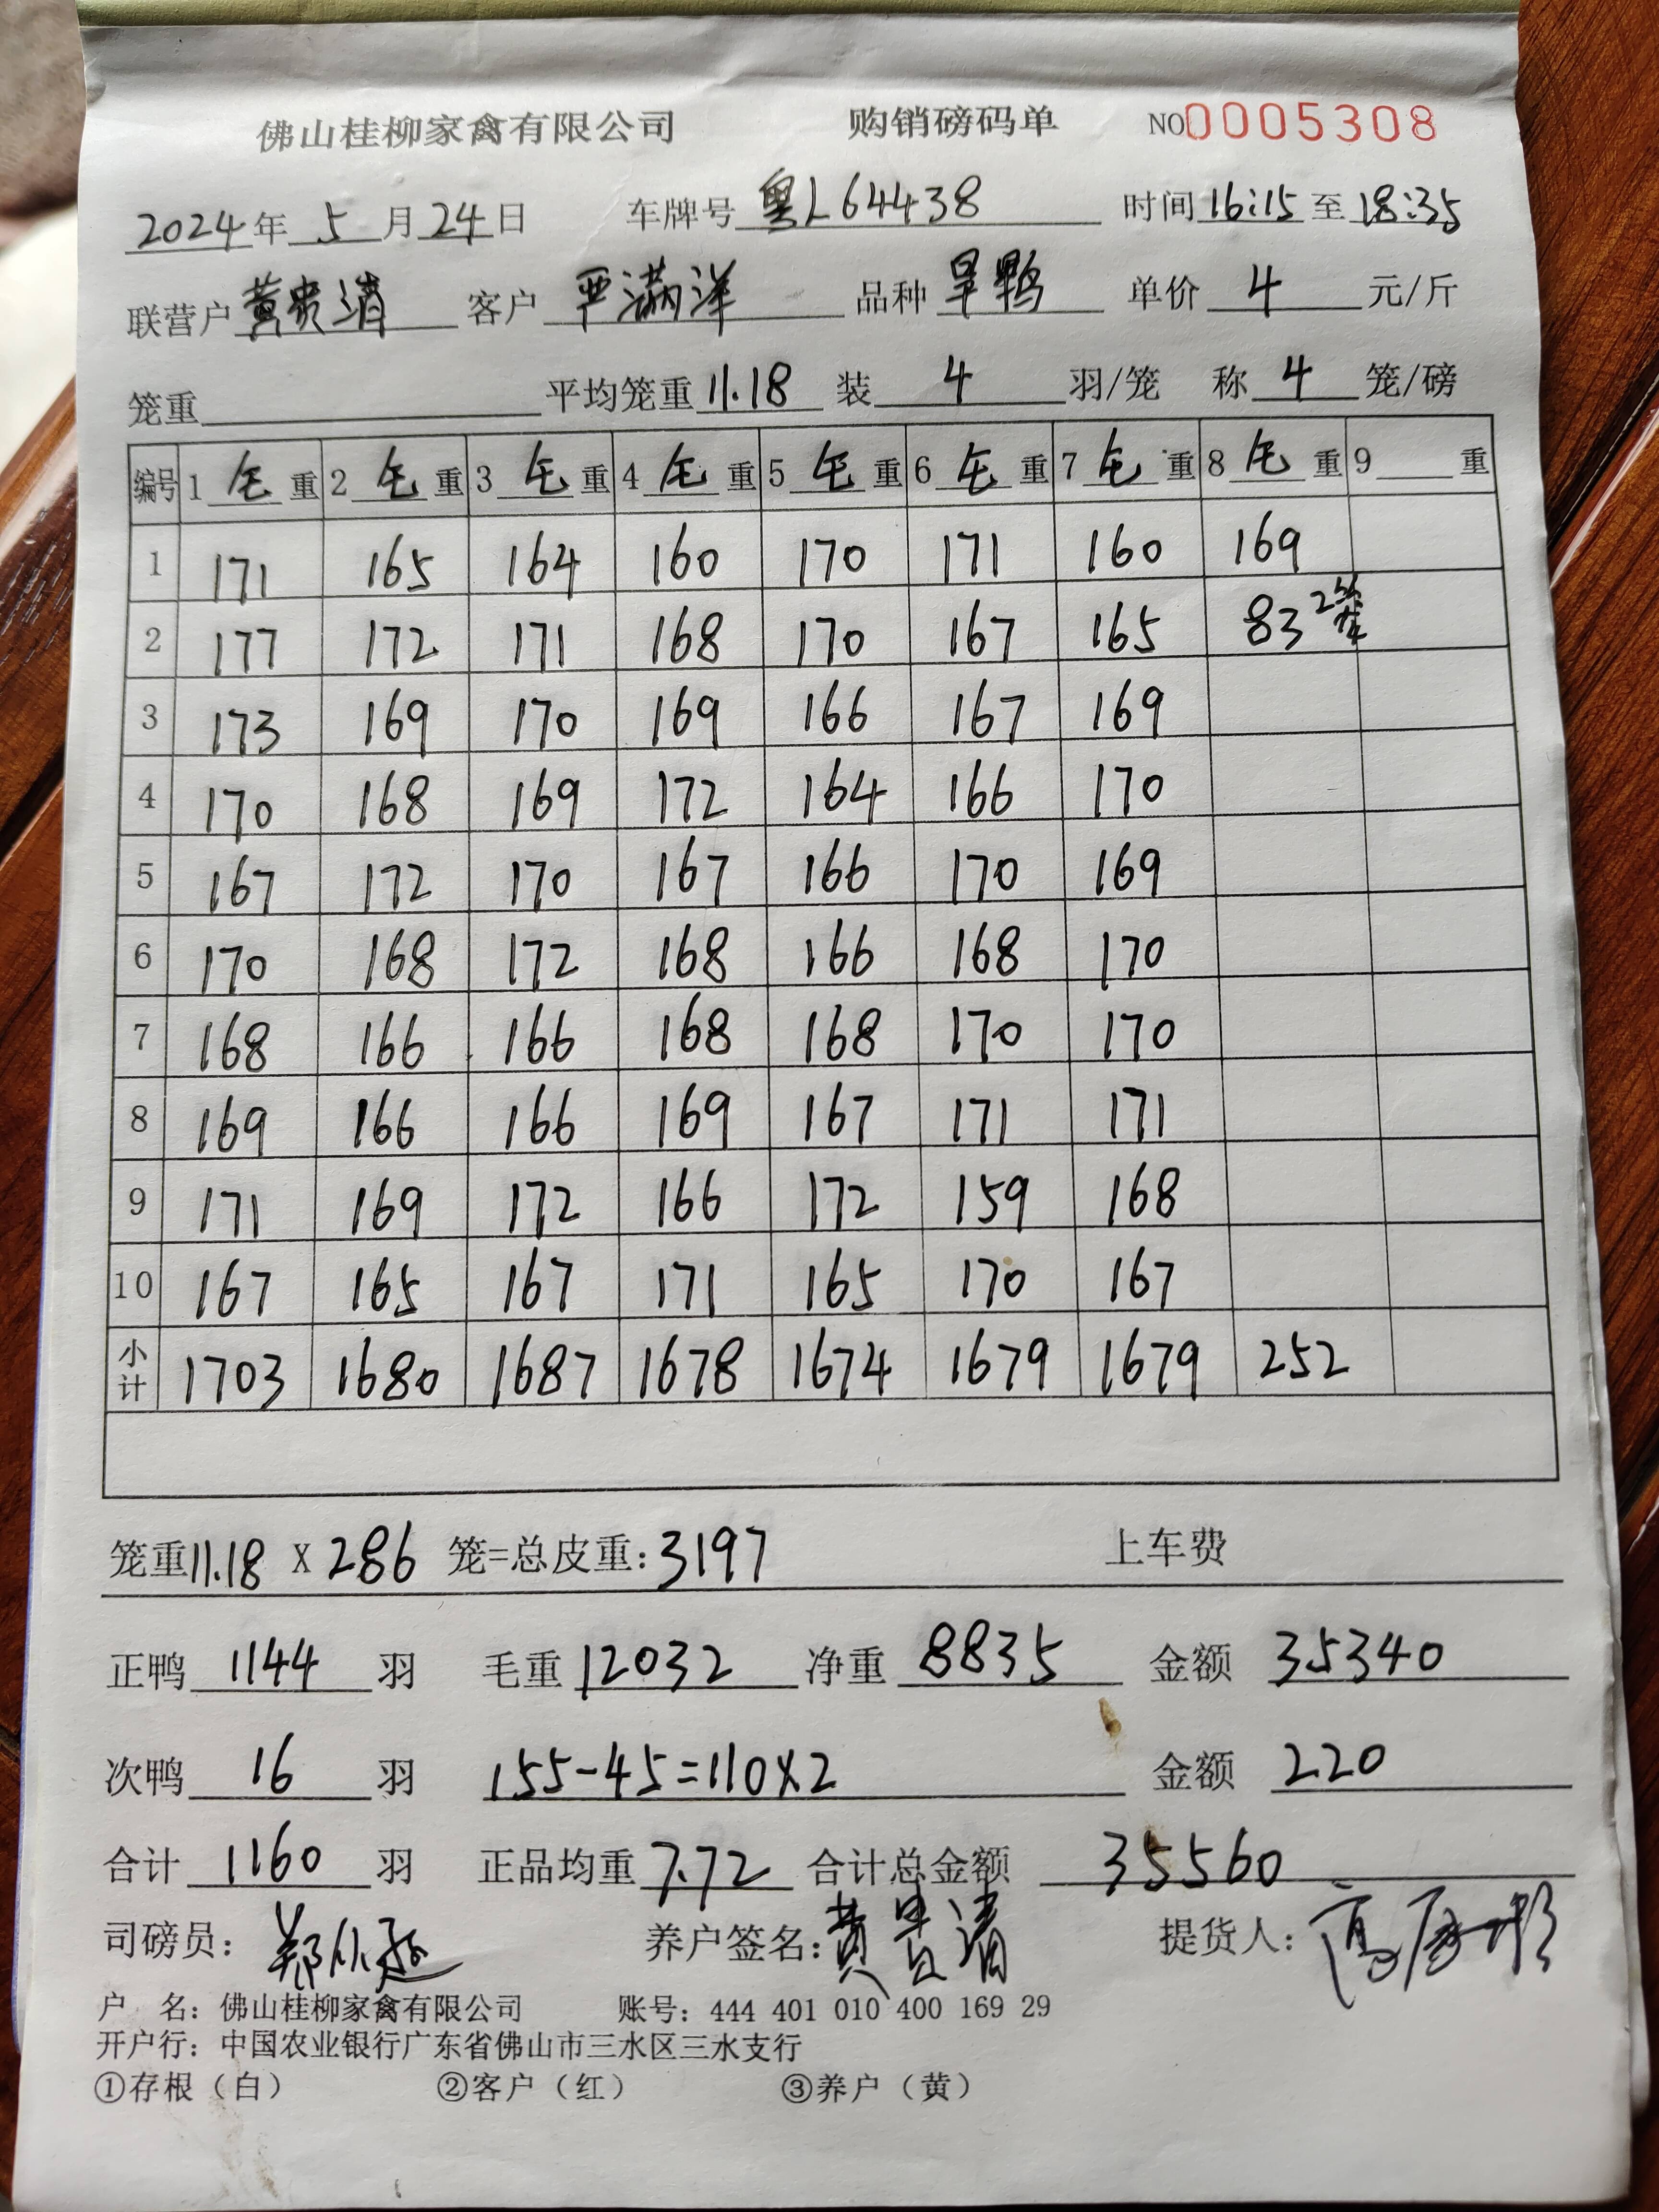 佛山桂柳家禽有限公司 购销磅码单 NO 0005308
2024年 5 月 24 日 车牌号 粤L64438 时间 16:15 至 18:35
联营户 黄贵清 客户 严满洋 品种 旱鸭 单价 4 元/斤
笼重 平均笼重 11.18 装 4 羽/笼 称 4 笼/磅
编号 1 毛 重 2 毛 重 3 毛 重 4 毛 重 5 毛 重 6 毛 重 7 毛 重 8 毛 重 9 重
1 171 165 164 160 170 171 160 169
2 177 172 171 168 170 167 165 83 2笼
3 173 169 170 169 166 167 169
4 170 168 169 172 164 166 170
5 167 172 170 167 166 170 169
6 170 168 172 168 166 168 170
7 168 166 166 168 168 170 170
8 169 166 166 169 167 171 171
9 171 169 172 166 172 159 168
10 167 165 167 171 165 170 167
小计 1703 1680 1687 1678 1674 1679 1679 252
笼重 11.18 X 286 笼=总皮重: 3197 上车费
正鸭 1144 羽 毛重 12032 净重 8835 金额 35340
次鸭 16 羽 155-45=110×2 金额 220
合计 1160 羽 正品均重 7.72 合计总金额 35560
司磅员: 养户签名: 黄贵清 提货人:
户 名: 佛山桂柳家禽有限公司 账号: 444 401 010 400 169 29
开户行: 中国农业银行广东省佛山市三水区三水支行
①存根（白） ②客户（红） ③养户（黄）